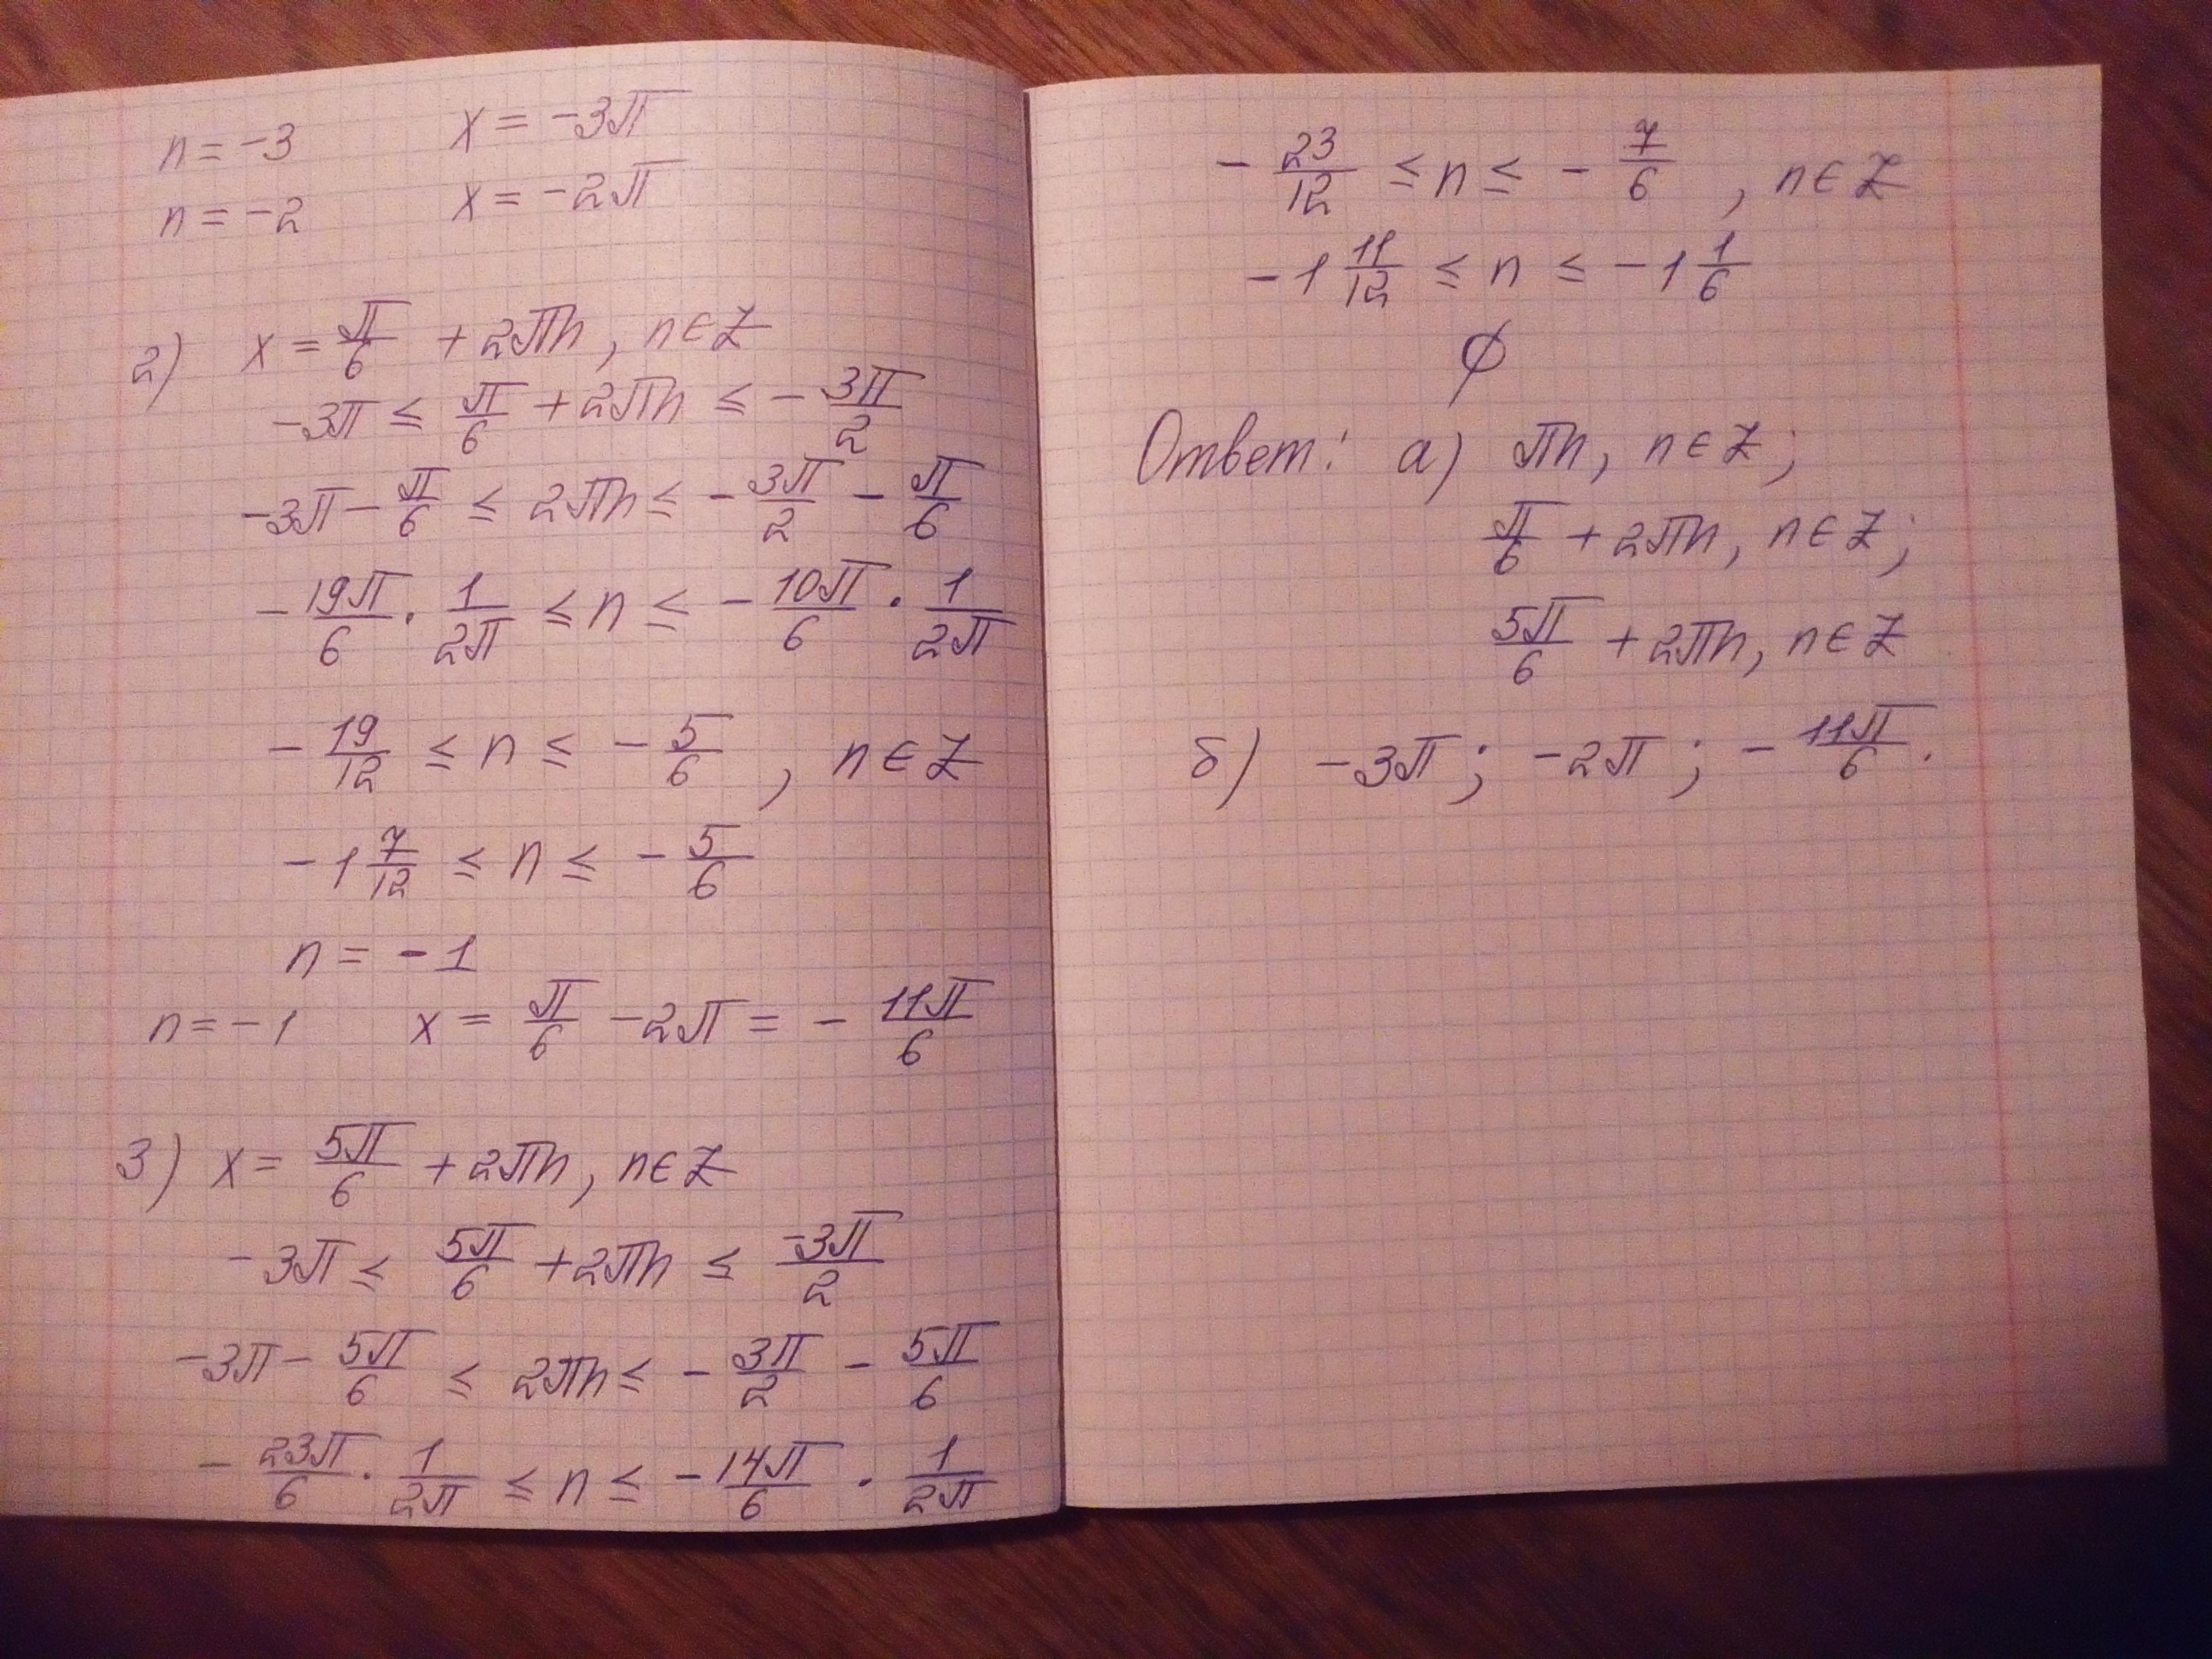 n = -3     x = -3π
n = -2     x = -2π
2) x = π/6 + 2πn, n∈Z
-3π ≤ π/6 + 2πn ≤ - 3π/2
-3π - π/6 ≤ 2πn ≤ - 3π/2 - π/6
- 19π/6 · 1/2π ≤ n ≤ - 10π/6 · 1/2π
- 19/12 ≤ n ≤ - 5/6, n∈Z
-1 7/12 ≤ n ≤ - 5/6
n = -1
n = -1     x = π/6 - 2π = - 11π/6
3) x = 5π/6 + 2πn, n∈Z
-3π ≤ 5π/6 + 2πn ≤ -3π/2
-3π - 5π/6 ≤ 2πn ≤ - 3π/2 - 5π/6
- 23π/6 · 1/2π ≤ n ≤ - 14π/6 · 1/2π
- 23/12 ≤ n ≤ - 7/6, n∈Z
-1 11/12 ≤ n ≤ -1 1/6
∅
Ответ: а) πn, n∈Z;
π/6 + 2πn, n∈Z;
5π/6 + 2πn, n∈Z
б) -3π; -2π; - 11π/6.